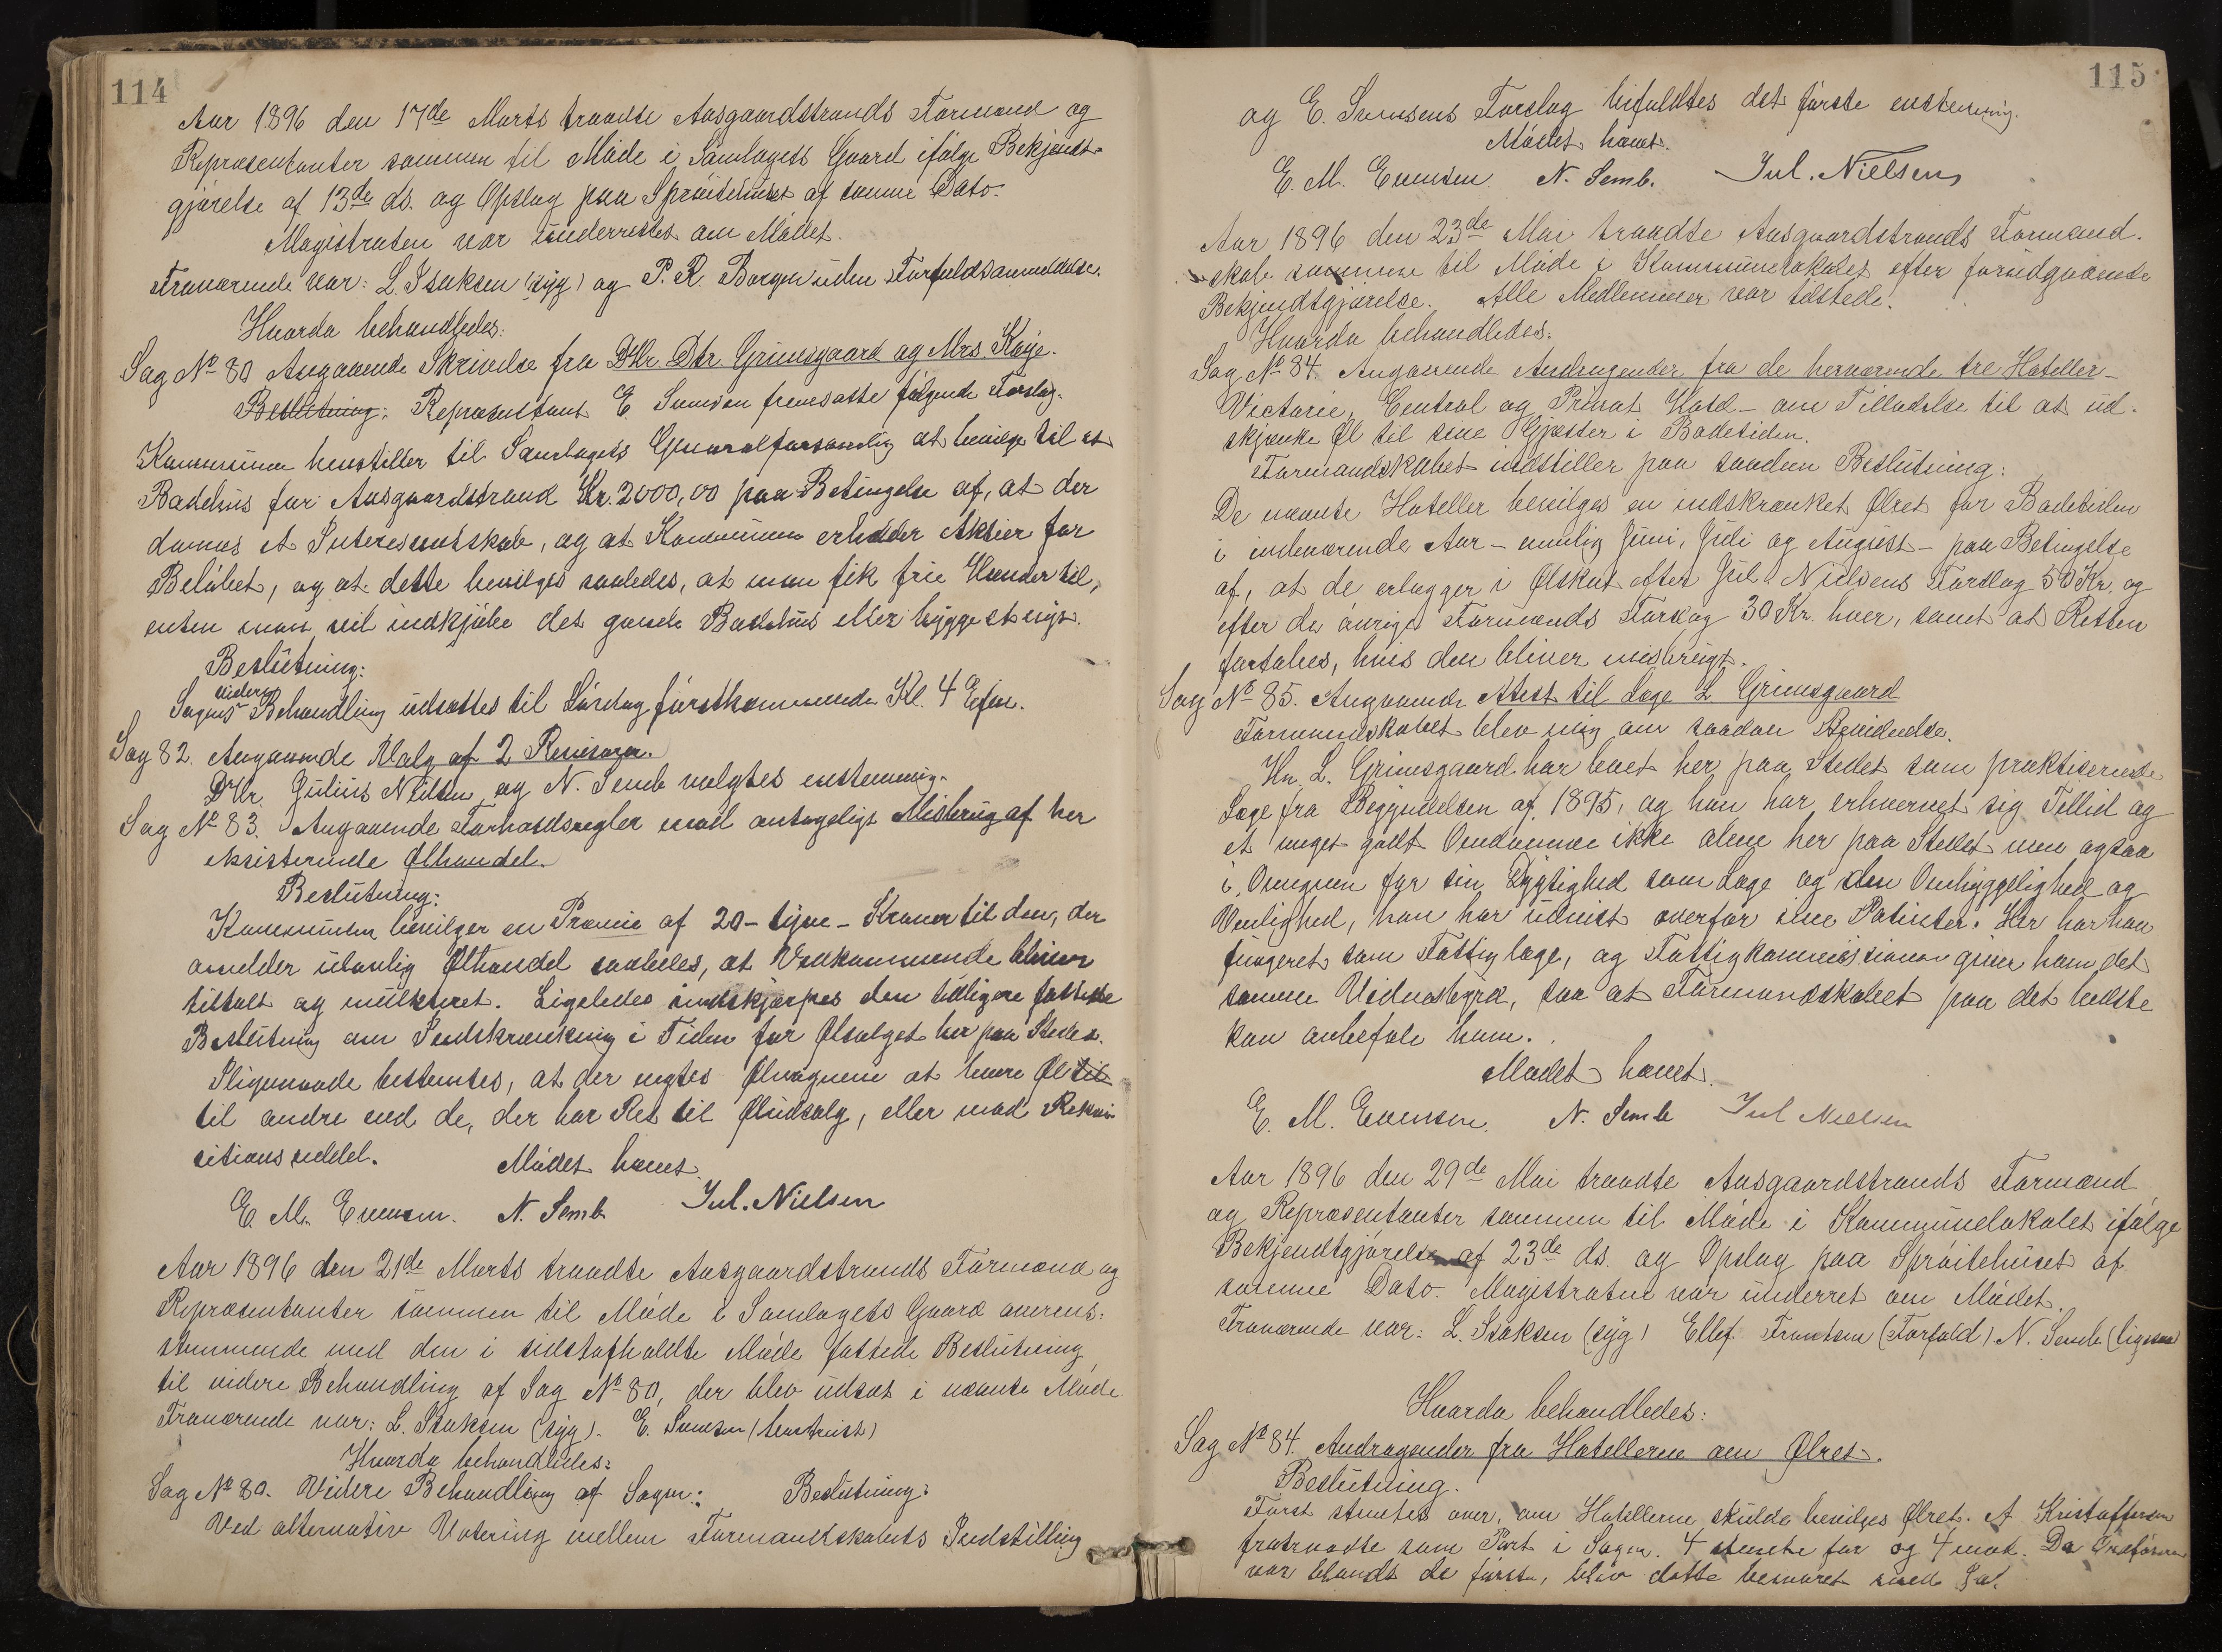 114
Aar 1896 den 17de Marts traadte Aasgaardstrands Formænd og
Repræsentanter sammen til Møde i Samlagets Gaard ifølge Bekjendt-
gjørelse af 13de ds. og Opslag paa Sprøitehuset af samme Dato.
Magistraten var underrettet om Mødet.
Fraværende var: L. Isaksen (syg) og P. R. Borgen uden Forfaldsanmeldelse.
Hvorda behandledes:
Sag No 80 Angaaende Skrivelse fra DHr. Dtr. Grimsgaard og Mrs. Kaye.
Beslutning: Repræsentant E. fremsatte følgende Forslag.
Kommunen henstiller til Samlagets Generalforsamling at bevilge til et
Badehus for Aasgaardstrand Kr. 2000,00 paa Betingelse af, at der
dannes et Interesentskab, og at Kommunen erholder Aktier for
Beløbet, og at dette bevilges saaledes, at man fik frie Hænder til,
enten man vil indkjøbe det gamle Badehus eller bygge et nyt.
Beslutning:
Sagens videre Behandling udsattes til Lørdag førstkommende Kl. 4 Efm.
Sag 82. Angaaende Valg af 2 Revisorer.
DHr. Julius Nilsen og N. Semb valgtes enstemmig.
Sag No 83. Angaaende Forholdsregler mod antageligt Misbrug af her
eksisterende Ølhandel.
Beslutning:
Kommunen bevilger en Præmie af 20 - tyve - Kroner til den, der
anmelder ulovlig Ølhandel saaledes, at Vedkommende bliver
tiltalt og mulkteret. Ligeledes indskjærpes den tidligere fattede
Beslutning om Indskrænkning i Tiden for Ølsalget her paa Stedet.
Sligemaade bestemtes, at der negtes Ølvognene at levere Øl til
til andre end de, der har Ret til Øludsalg, eller mod Rekvi-
sitionsseddel. Mødet hævet.
E. M. Evensen. N. Semb Jul. Nielsen
Aar 1896 den 21de Marts traadte Aasgaardstrands Formænd og
Repræsentanter sammen til Møde i Samlagets Gaard overens-
stemmende med den i sidstafholdte Møde fattede Beslutning
til videre Behandling af Sag No 80, der blev udsat i nævnte Møde.
Fraværende var: L. Isaksen (syg). E. (bortreist)
Hvorda behandledes:
Sag No 80. Videre Behandling af Sagen: Beslutning:
Ved alternativ Votering mellem Formandskabets Indstilling
115
og E. Forslag bifaldtes det første enstemmig.
Mødet hævet.
E. M. Evensen. N. Semb. Jul. Nielsen
Aar 1896 den 23de Mai traadte Aasgaardstrands Formand-
skab sammen til Møde i Kommunelokalet efter forudgaaende
Bekjendtgjørelse. Alle Medlemmer var tilstede.
Hvorda behandledes:
Sag No 84. Angaaende Andragender fra de herværende tre Hoteller -
Victorie, Central og Privat Hotel - om Tilladelse til at ud-
skjænke Øl til sine Gjæster i Badetiden.
Formandskabet indstiller paa saadan Beslutning:
De nævnte Hoteller bevilges en indskrænket Ølret for Badetiden
i indeværende Aar - nemlig Juni, Juli og August - paa Betingelse
af, at de erlægger i Ølskat efter Jul. Nielsens Forslag 50 Kr. og
efter de øvrige Formænds Forslag 30 Kr. hver, samt at Retten
fortabes, hvis den bliver misbrugt.
Sag No 85. Angaaende Atest til Læge L. Grimsgaard
Formandskabet blev enig om saadan Bevidnelse.
Hr. L. Grimsgaard har boet her paa Stedet som praktiserende
Læge fra Begyndelsen af 1895, og han har erhvervet sig Tillid og
et meget godt Omdømme ikke alene her paa Stedet men ogsaa
i Omegnen for sin Dygtighed som Læge og den Omhyggelighed og
Venlighed, han har udvist overfor sine Patienter. Her har han
fungeret som Fattiglæge, og Fattigkommissionen giver ham det
samme Vidnesbyrd, saa at Formandskabet paa det bedste
kan anbefale ham.
Mødet hævet.
E. M. Evensen. N. Semb Jul Nielsen
Aar 1896 den 29de Mai traadte Aasgaardstrands Formænd
og Repræsentanter sammen til Møde i Kommunelokalet ifølge
Bekjendtgjørelse af 23de ds. og Opslag paa Sprøitehuset af
samme Dato. Magistraten var underret om Mødet.
Fraværende var: L. Isaksen (syg) Ellef Frantsen (Forfald) N. Semb (ligesaa)
Hvorda behandledes:
Sag No 84. Andragender fra Hotellerne om Ølret.
Beslutning.
Først stemtes over, om Hotellerne skulde bevilges Ølret. A. Kristoffersen
fratraadte som Part i Sagen. 4 stemte for og 4 mod. Da Ordføreren
var blandt de første, blev dette besvaret med Ja.